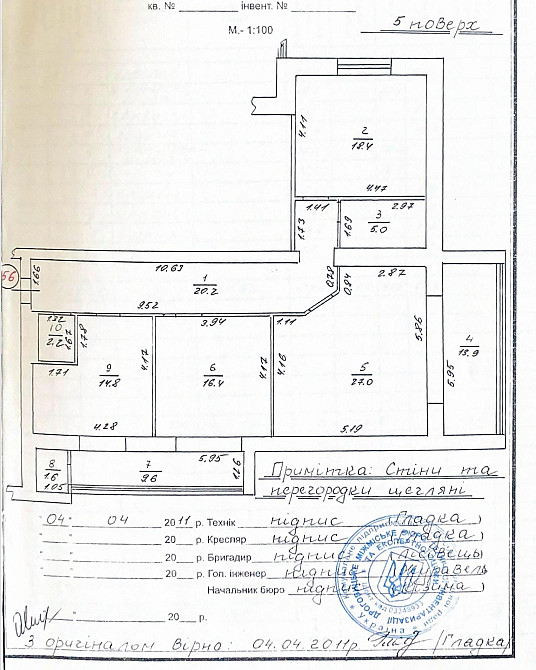 кв. № інвент. №
5 поверх
М.- 1:100
4.11
2
18.4
4.47
1.41
2.97
1.73
1.69
3
5.0
56
1.66
10.63
1
20.2
0.78
0.84
2.87
9.52
1.32
10
2.2
1.67
1.78
3.94
1.11
5.86
4
15.9
5.95
1.71
9
14.8
4.17
6
16.4
4.17
4.16
5
27.0
4.28
5.19
8
1.6
1.05
7
9.6
5.95
Примітка: Стіни та
перегородки цегляні
"04" 04 2011 р. Технік підпис (Гладка)
" " 20 р. Кресляр підпис (Гладка)
" " 20 р. Бригадир підпис
" " 20 р. Гол. інженер підпис
Начальник бюро підпис
" " 20 р.
З оригіналом вірно: 04.04.2011р. (Гладка)